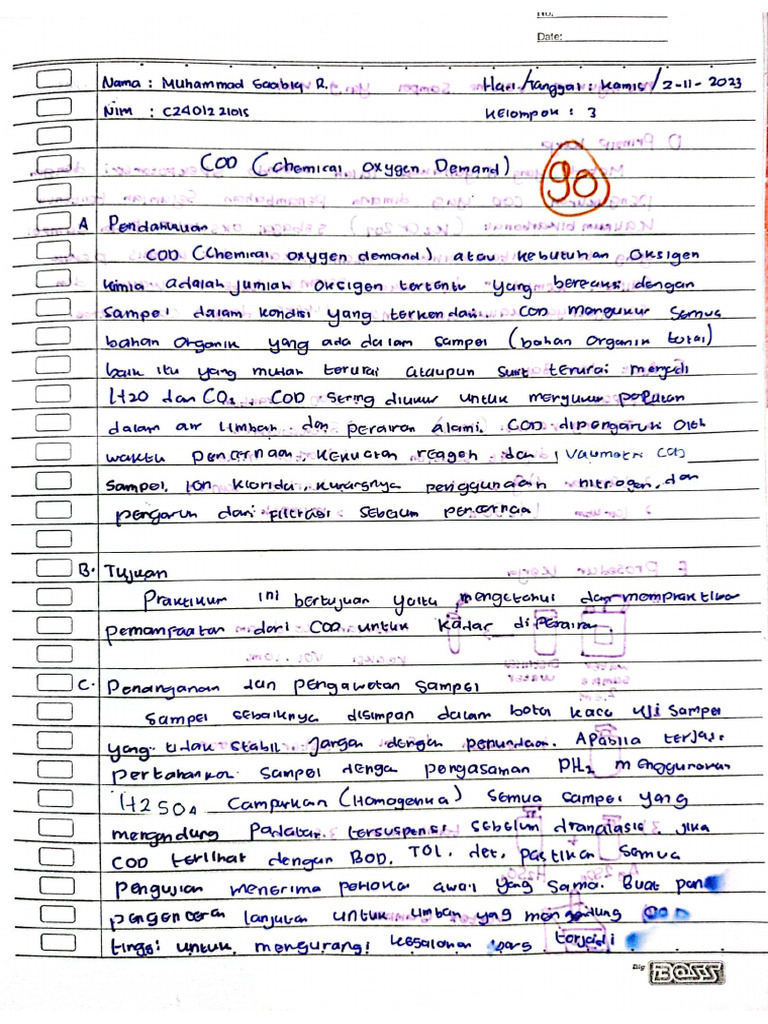 No.
Date:
Nama : Muhammad Saabiq R. Hari/Tanggal : Kamis/2-11-2023
Nim : C2401221015 Kelompok : 3
COD (Chemical Oxygen Demand) 90
A Pendahuluan
COD (Chemical oxygen demand) atau kebutuhan oksigen
kimia adalah jumlah oksigen tertentu yang bereaksi dengan
sampel dalam kondisi yang terkendali. COD mengukur semua
bahan organik yang ada dalam sampel (bahan organik total)
baik itu yang mudah terurai ataupun sulit terurai menjadi
H2O dan CO2. COD sering diukur untuk mengukur polutan
dalam air limbah dan perairan alami. COD dipengaruhi oleh
waktu pencernaan, kekuatan reagen dan
sampel, ion klorida, kurangnya penggunaan nitrogen, dan
pengaruh dari filtrasi sebelum pencernaa
B. Tujuan
Praktikum ini bertujuan yaitu mengetahui dan
pemanfaatan dari COD untuk kadar di perairan
C. Penanganan dan pengawetan sampel
Sampel sebaiknya disimpan dalam botol kaca Uji sampel
yang tidak stabil jangan dengan penundaan. Apabila terjadi
pertahankan sampel denga pengasaman PH2 menggunakan
H2SO4 Campurkan (Homogenka) semua sampel yang
mengandung padatan tersuspensi sebelum dianalasis. Jika
COD terlihat dengan BOD, TOL, det, pastikan semua
pengujian menerima awal yang sama. Buat
pengenceran lanjutan untuk limbah yag mengandung COD
tinggi untuk mengurangi kesalahan yang terjadi
Big BOSS